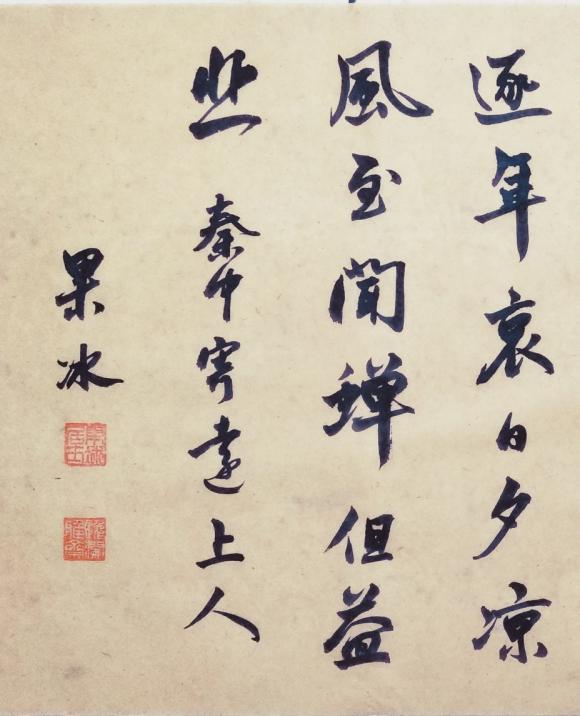 逐年衰日夕凉
風至聞蟬但益
悲 秦中寄遠上人
果冰